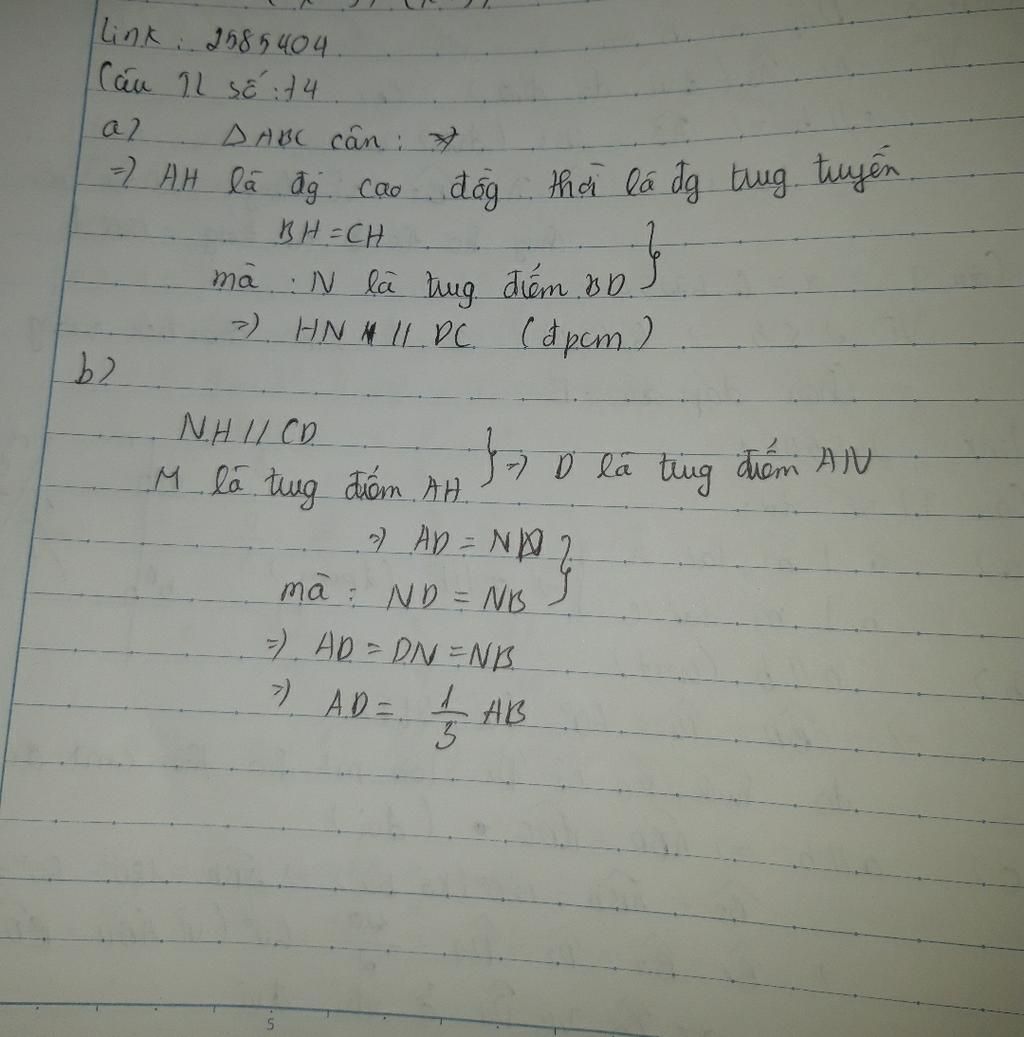 Link: 2585404
Câu TL số: 14
a) ΔABC cân:
=> AH là đg cao đồg thời là đg tug tuyến
BH = CH
mà : N là tug điểm BD
=> HN // DC (đpcm)
b)
NH // CD
M là tug điểm AH } => D là tug điểm AN
=> AD = ND
mà : ND = NB
=> AD = DN = NB
=> AD = 1/3 AB
5